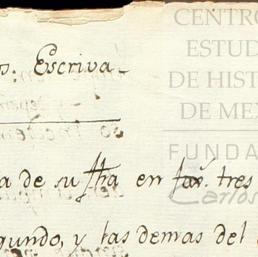 CENTRO
ESTUD
DE HIST
DE MEX
FUNDA
Carlos
s. Escriva
a de su fha en tres
gundo, y las demas del